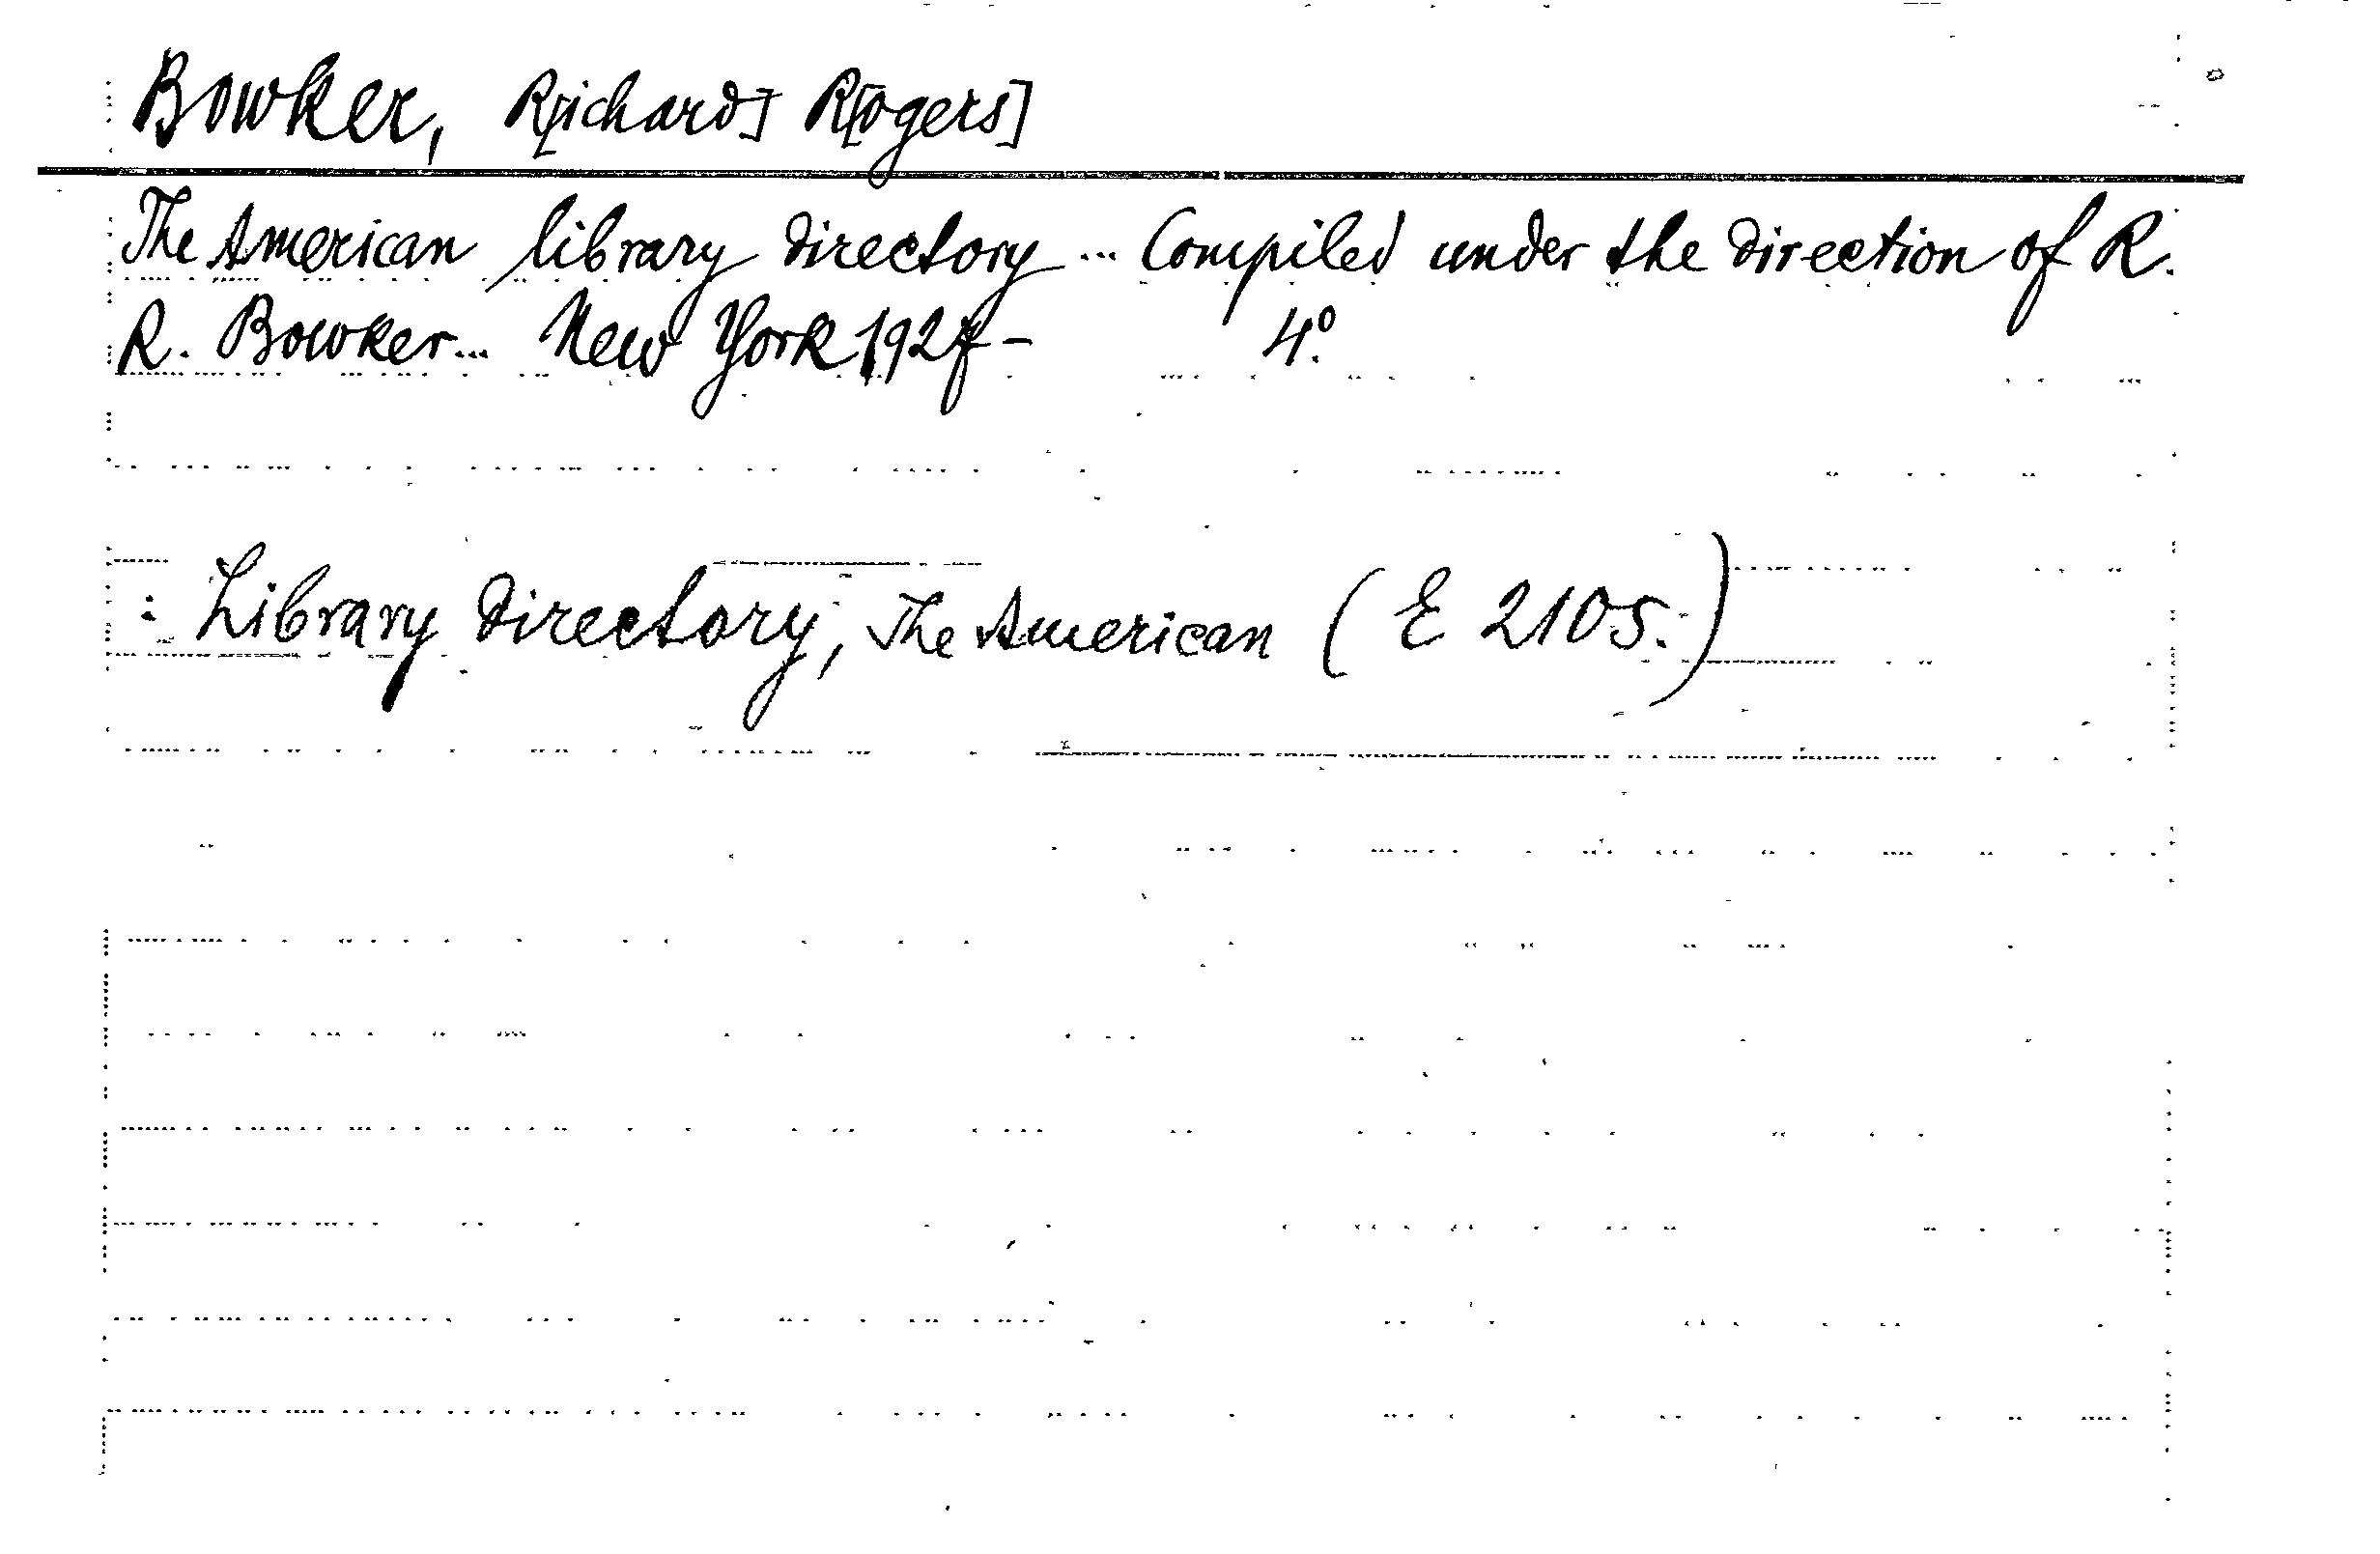 Bowker, R[ichard] R[ogers]
The American library directory ... Compiled under the direction of R.
R. Bowker ... New York 1927- 4°.
: Library directory, The American (E 2105.)